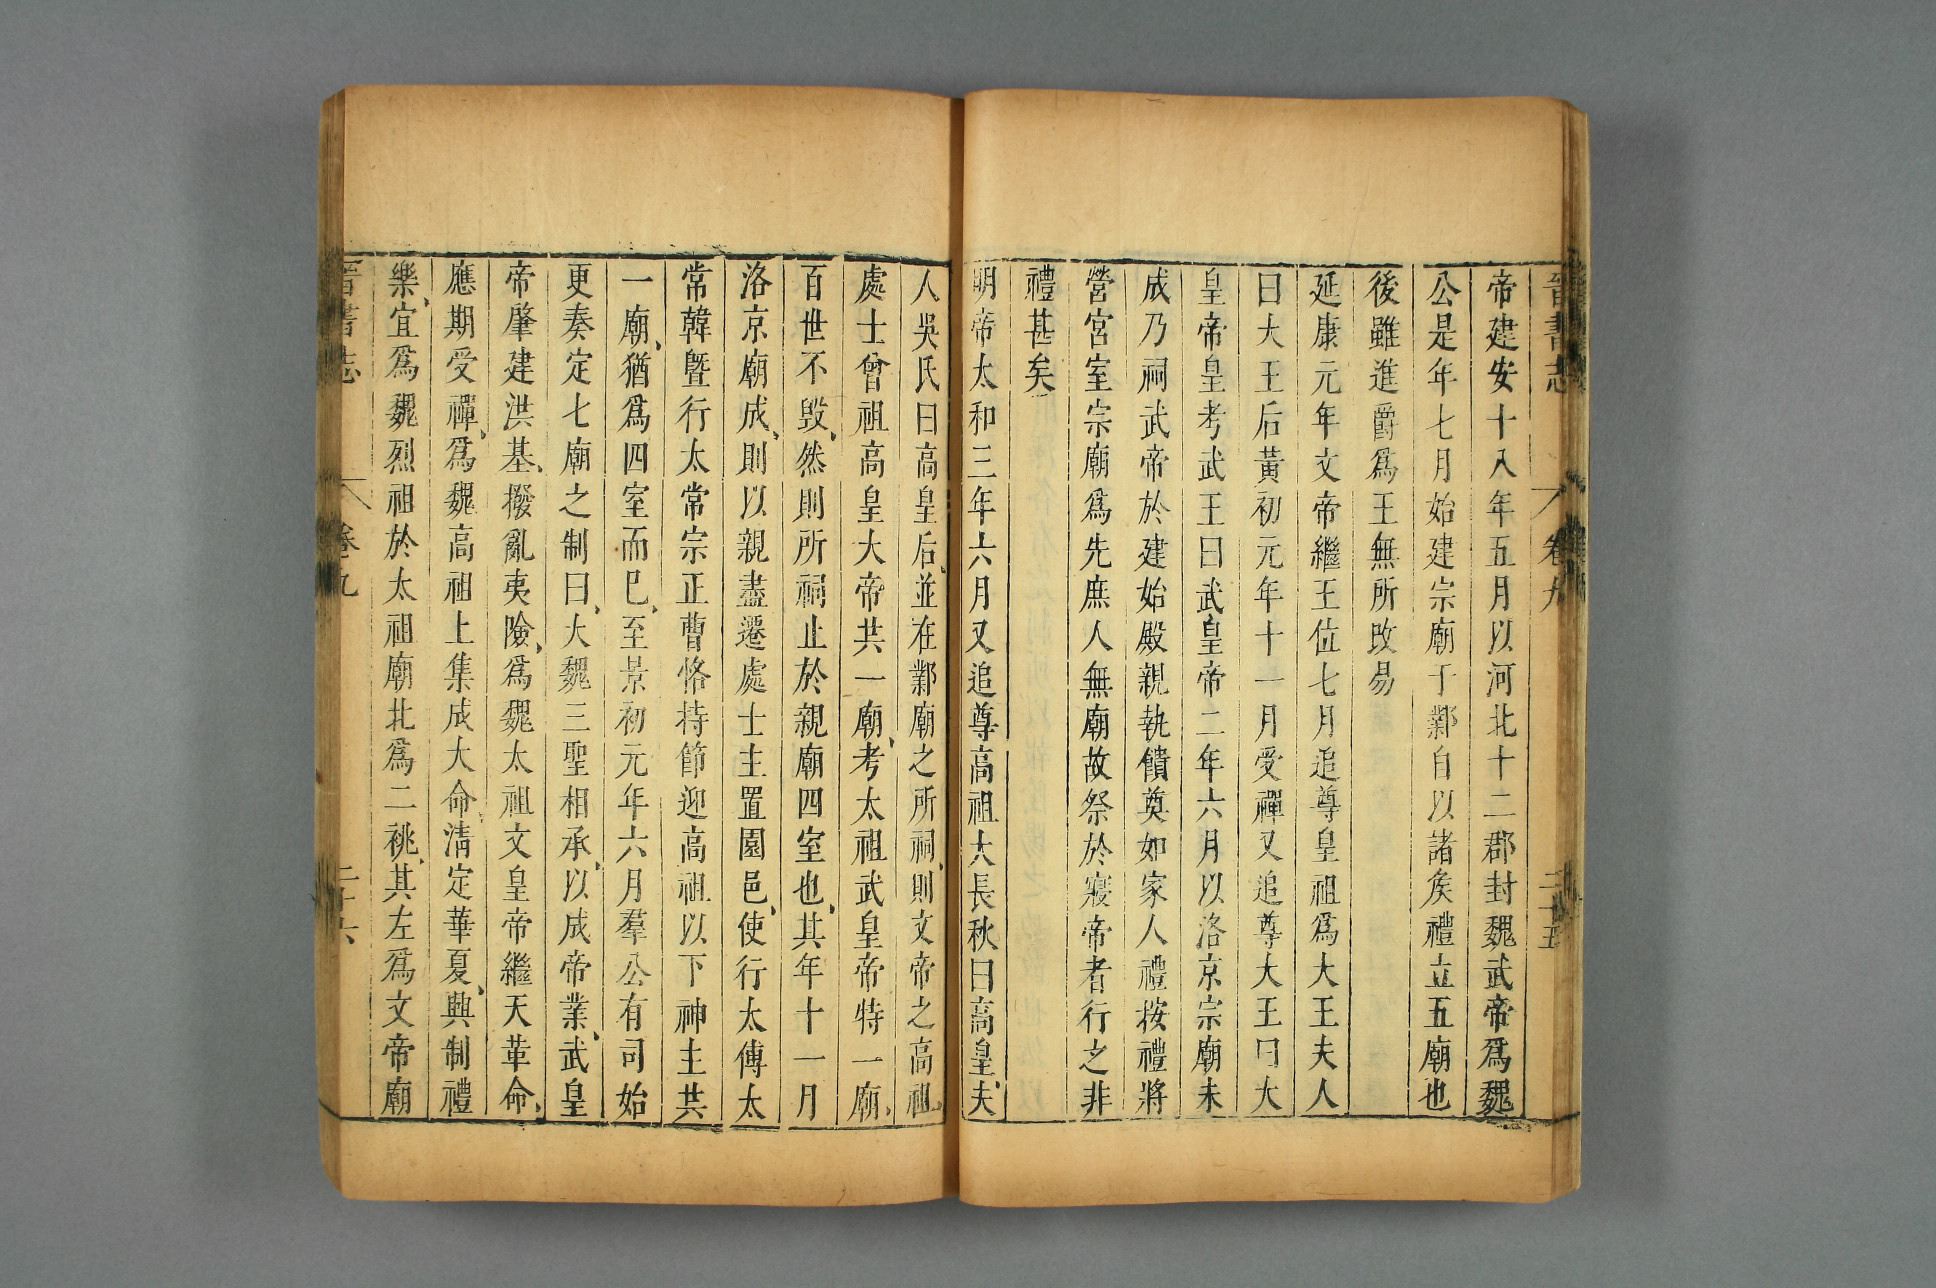 晉書志 卷九 二十五
帝建安十八年五月以河北十二郡封魏武帝爲魏
公是年七月始建宗廟于鄴自以諸矦禮立五廟也
後雖進爵爲王無所改易
延康元年文帝繼王位七月追尊皇祖爲大王夫人
曰大王后黃初元年十一月受禪又追尊大王曰大
皇帝皇考武王曰武皇帝二年六月以洛京宗廟未
成乃祠武帝於建始殿親執饋奠如家人禮按禮將
營宮室宗廟爲先庶人無廟故祭於寢帝者行之非
禮甚矣
明帝太和三年六月又追尊高祖大長秋曰高皇、夫
人吳氏曰高皇后、並在鄴廟之所祠、則文帝之高祖
處士曾祖高皇大帝共一廟、考太祖武皇帝特一廟、
百世不毀、然則所祠止於親廟四室也、其年十一月
洛京廟成、則以親盡遷處士主置園邑、使行太傅太
常韓曁行太常宗正曹恪持節迎高祖以下神主共
一廟、猶爲四室而巳、至景初元年六月羣公有司始
更奏定七廟之制曰、大魏三聖相承、以成帝業、武皇
帝肇建洪基、撥亂夷險、爲魏太祖文皇帝繼天革命、
應期受禪、爲魏高祖上集成大命、淸定華夏、興制禮
樂、宜爲魏烈祖於太祖廟北爲二祧、其左爲文帝廟
晉書志 卷九 二十六